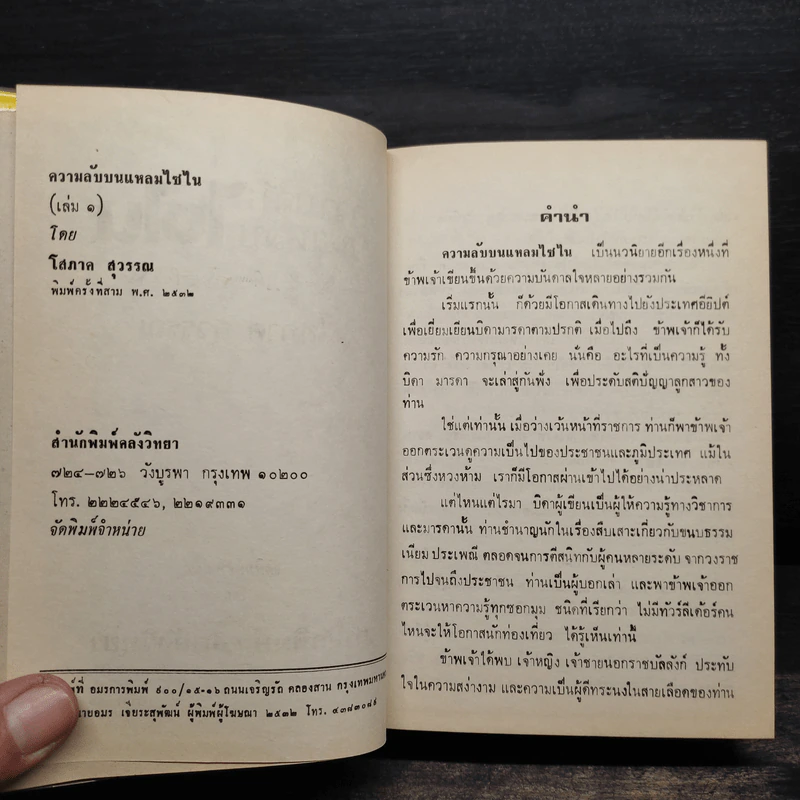 ความลับบนแหลมไซไน
(เล่ม ๑)
โดย
โสภาค สุวรรณ
พิมพ์ครั้งที่สาม พ.ศ. ๒๕๓๒
สำนักพิมพ์คลังวิทยา
๗๒๔–๗๒๖ วังบูรพา กรุงเทพ ๑๐๒๐๐
โทร. ๒๒๒๔๕๔๖, ๒๒๑๙๓๓๑
จัดพิมพ์จำหน่าย
อมรการพิมพ์ ๙๐๐/๑๕-๑๖ ถนนเจริญรัถ คลองสาน
อมร เจียระสุพัฒน์ ผู้พิมพ์ผู้โฆษณา ๒๕๓๒ โทร.
คำนำ
ความลับบนแหลมไซไน เป็นนวนิยายอีกเรื่องหนึ่งที่
ข้าพเจ้าเขียนขึ้นด้วยความบันดาลใจหลายอย่างรวมกัน
เริ่มแรกนั้น ก็ด้วยมีโอกาสเดินทางไปยังประเทศอียิปต์
เพื่อเยี่ยมเยียนบิดามารดาตามปรกติ เมื่อไปถึง ข้าพเจ้าก็ได้รับ
ความรัก ความกรุณาอย่างเคย นั่นคือ อะไรที่เป็นความรู้ ทั้ง
บิดา มารดา จะเล่าสู่กันฟัง เพื่อประดับสติปัญญาลูกสาวของ
ท่าน
ใช่แต่เท่านั้น เมื่อว่างเว้นหน้าที่ราชการ ท่านก็พาข้าพเจ้า
ออกตระเวนดูความเป็นไปของประชาชนและภูมิประเทศ แม้ใน
ส่วนซึ่งหวงห้าม เราก็มีโอกาสผ่านเข้าไปได้อย่างน่าประหลาด
แต่ไหนแต่ไรมา บิดาผู้เขียนเป็นผู้ให้ความรู้ทางวิชาการ
และมารดานั้น ท่านชำนาญนักในเรื่องสืบเสาะเกี่ยวกับขนบธรรม
เนียม ประเพณี ตลอดจนการตีสนิทกับผู้คนหลายระดับ จากวงราช
การไปจนถึงประชาชน ท่านเป็นผู้บอกเล่า และพาข้าพเจ้าออก
ตระเวนหาความรู้ทุกซอกมุม ชนิดที่เรียกว่า ไม่มีทัวร์ลีเด้อร์คน
ไหนจะให้โอกาสนักท่องเที่ยว ได้รู้เห็นเท่านี้
ข้าพเจ้าได้พบ เจ้าหญิง เจ้าชายนอกราชบัลลังก์ ประทับ
ใจในความสง่างาม และความเป็นผู้ดีทระนงในสายเลือดของท่าน